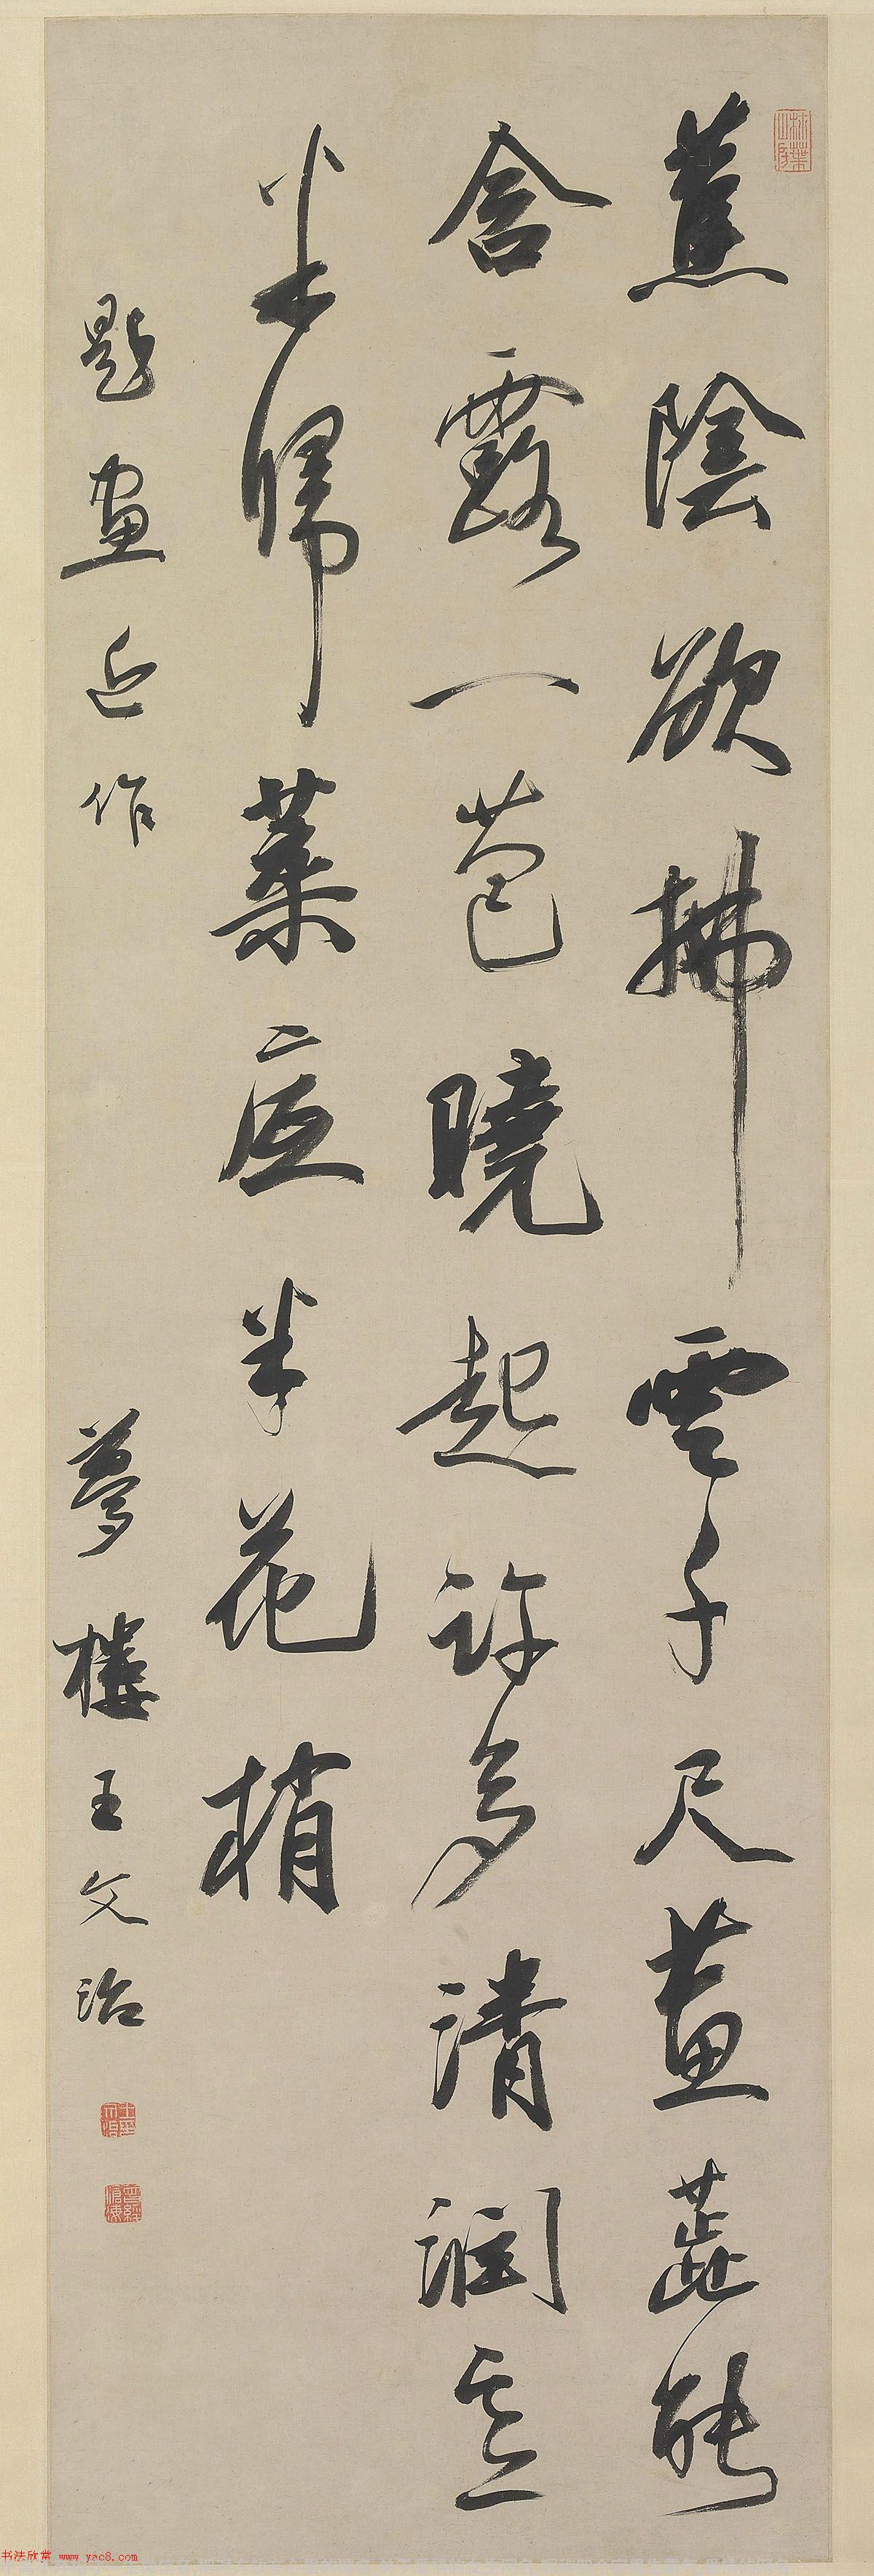 蕉陰欲拂雲千尺畫蕋能
含露一苞曉起許多清潤意
半歸葉底半花梢
題畫近作
夢樓王文治
书法欣赏 www.yac8.com